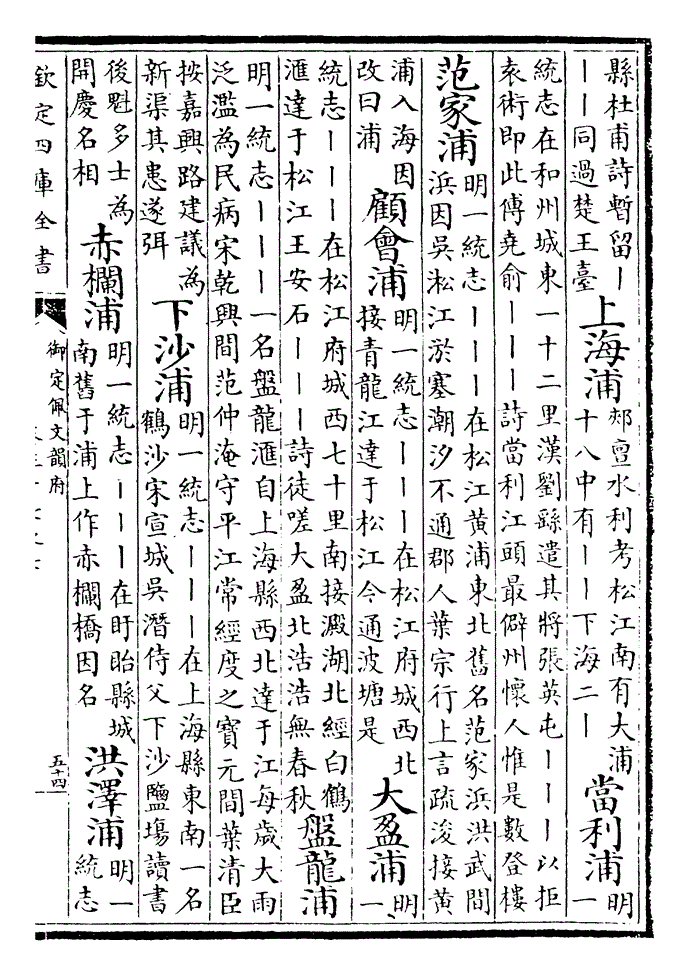 縣杜甫詩暫留丨
丨丨同過楚王臺
上海浦
郟亶水利考松江南有大浦
十八中有丨丨下海二丨
當利浦
明
一
統志在和州城東一十二里漢劉繇遣其將張英屯丨丨丨以拒
袁術即此傅堯俞丨丨丨詩當利江頭最僻州懷人惟是數登樓
范家浦
明一統志丨丨丨在松江黄浦東北舊名范家浜洪武間
浜因吳淞江淤塞潮汐不通郡人葉宗行上言疏浚接黄
浦入海因
改曰浦
顧會浦
明一統志丨丨丨在松江府城西北
接青龍江達于松江今通波塘是
大盈浦
明
一
統志丨丨丨在松江府城西七十里南接澱湖北經白鶴
滙達于松江王安石丨丨丨詩徒嗟大盈北浩浩無春秋
盤龍浦
明一統志丨丨丨一名盤龍滙自上海縣西北達于江每歲大雨
泛濫為民病宋乾興間范仲淹守平江常經度之寶元間葉清臣
按嘉興路建議為
新渠其患遂弭
下沙浦
明一統志丨丨丨在上海縣東南一名
鶴沙宋宣城吳潛侍父下沙鹽塲讀書
後魁多士為
開慶名相
赤欄浦
明一統志丨丨丨在盱眙縣城
南舊于浦上作赤欄橋因名
洪澤浦
明一
統志
欽定四庫全書
御定佩文韻府
五十四